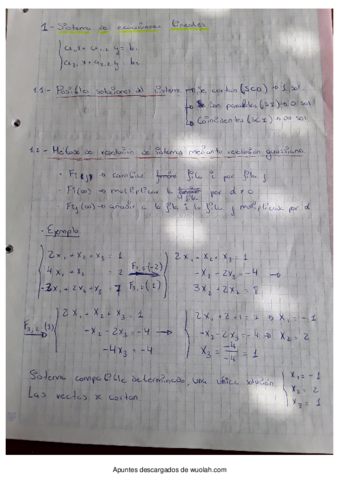 1- Sistema de ecuaciones lineales
a₁₁x + a₁₂ y = b₁
a₂₁ x + a₂₂ y b₂
1.1- Posibles soluciones del sistema se cortan (SCD) → 1 sol.
Son paralelas (SI) → 0 sol
Coincidentes (SCI) → ∞ sol
1.2- Método de resolución de sistemas mediante gaussiana
→ cambiar fila i por fila j
Fi(α) → multiplicar la fila por α ≠ 0
Fij(α) → añadir a la fila i la fila j multiplicar por α
• Ejemplo
2x₁ + x₂ + x₃ = 1
4x₁ + x₂ = -2
-2x₁ + 2x₂ + x₃ = 7
2x₁ + x₂ + x₃ = 1
-x₂ - 2x₃ = -4 →
3x₂ + 2x₃ = 8
2x₁ + x₂ + x₃ = 1
-x₂ - 2x₃ = -4 →
-4x₃ = -4
2x₁ + 2 + 1 = 1 → x₁ = -1
-x₂ - 2x₃ = -4 → x₂ = 2
x₃ = -4/-4 = 1
Sistema compatible determinado, una única solución
Las rectas se cortan.
x₁ = -1
x₂ = 2
x₃ = 1
Apuntes descargados de wuolah.com